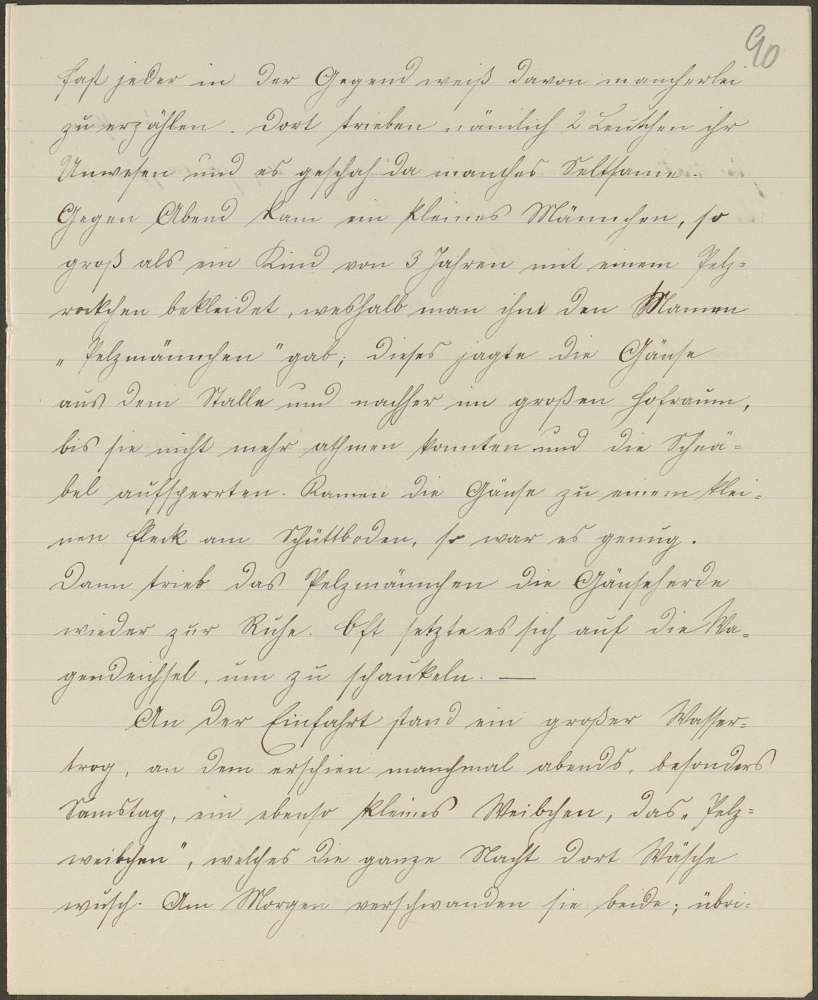 90
fast jeder in der Gegend weiß davon mancherlei
zu erzählen. Dort trieben nämlich 2 Leutchen ihr
Unwesen und es geschah da manches Seltsame.
Gegen Abend kam ein kleines Männchen, so
groß als ein Kind von 3 Jahren mit einem Pelz=
rockchen bekleidet, weshalb man ihm den Namen
„Pelzmännchen" gab; dieses jagte die Gänse
aus dem Stalle und nachher im großen Hofraum,
bis sie nicht mehr athmen konnten und die Schnä=
bel aufsperrten. Kamen die Gänse zu einem klei=
nen Fleck am Schüttboden, so war es genug.
Dann trieb das Pelzmännchen die Gänseherde
wieder zur Ruhe. Oft setzte es sich auf die Wa=
gendeichsel, um zu schaukeln. —
An der Einfahrt stand ein großer Wasser=
trog, an dem erschien manchmal abends, besonders
Samstag, ein ebenso kleines Weibchen, das „Pelz=
weibchen", welches die ganze Nacht dort Wäsche
wusch. Am Morgen verschwanden sie beide; übri=